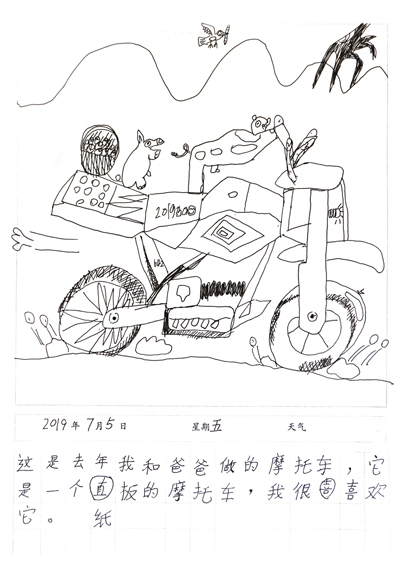 2019年7月5日 星期五 天气
这是去年我和爸爸做的摩托车，它
是一个直板的摩托车，我很喜喜欢
它。 纸